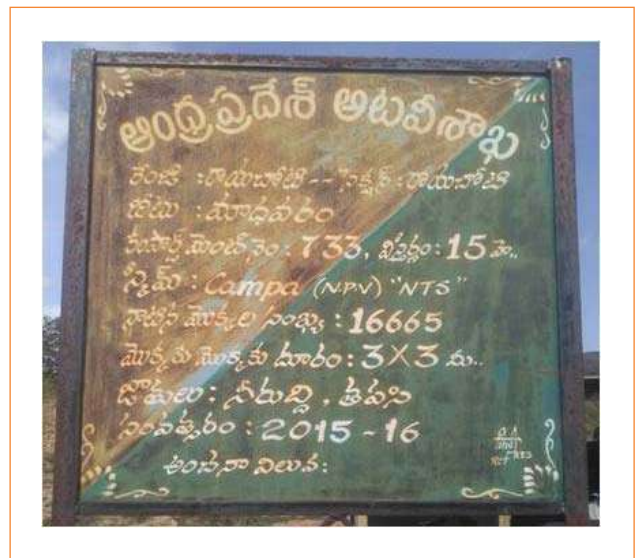 ఆంధ్రప్రదేశ్ అటవీశాఖ
రేంజి : రాయచోటి -- సెక్షన్ : రాయచోటి
బీటు : మాధవరం
కంపార్ట్ మెంట్ నెం : 733, విస్తీర్ణం : 15 హె..
స్కీమ్ : Campa (N.P.V) "NTS"
నాటిన మొక్కల సంఖ్య : 16665
మొక్కకు మొక్కకు దూరం : 3X3 మీ..
జాతులు : నీరుద్ది , తపసి
సంవత్సరం : 2015 - 16
అంచనా విలువ :